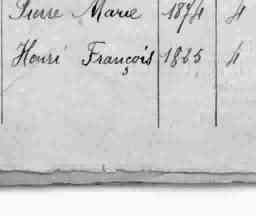 Pierre Marie 1874 4
Henri François 1885 4